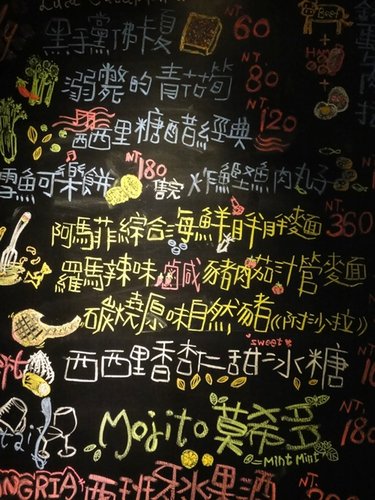 黑手黨佛卡夏 NT 60
溺斃的青花筍 NT 80
西西里糖醋經典 NT 120
雪魚可樂餅 NT 180 炸鰹魚肉丸子
阿馬菲綜合海鮮胖胖麥麵 NT 360
羅馬辣味鹵咸豬肉茄汁管麥麵
碳燒原味自然豬(附沙拉)
西西里香杏仁甜冰糖 sweet
Mojito 莫希多 NT 180
Mint Mint
NGRIA 西班牙水果酒 NT